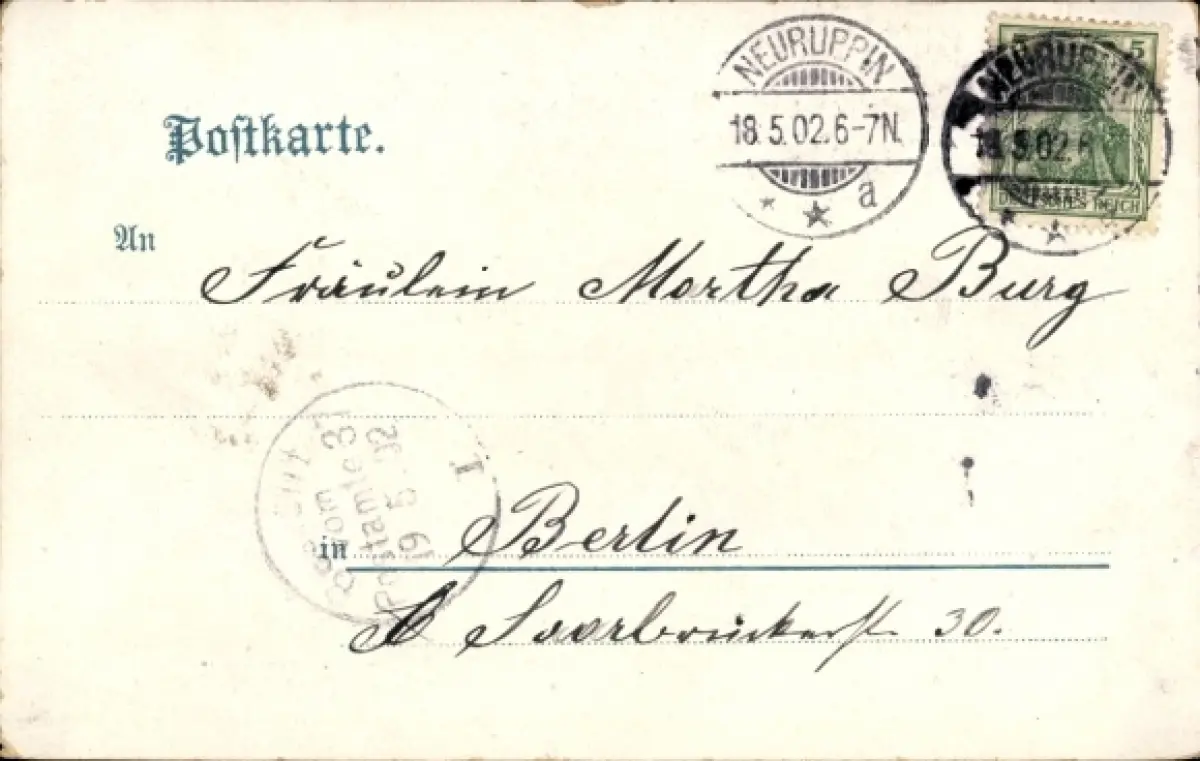 NEURUPPIN
18.5.02.6-7N.
a
NEURUPPIN
18.5.02.6
5
DEUTSCHES REICH
Postkarte.
An
Fräulein Martha Burg
vom
Postamte 37
19 5 02
I
in Berlin
Saarbrückerst. 30.